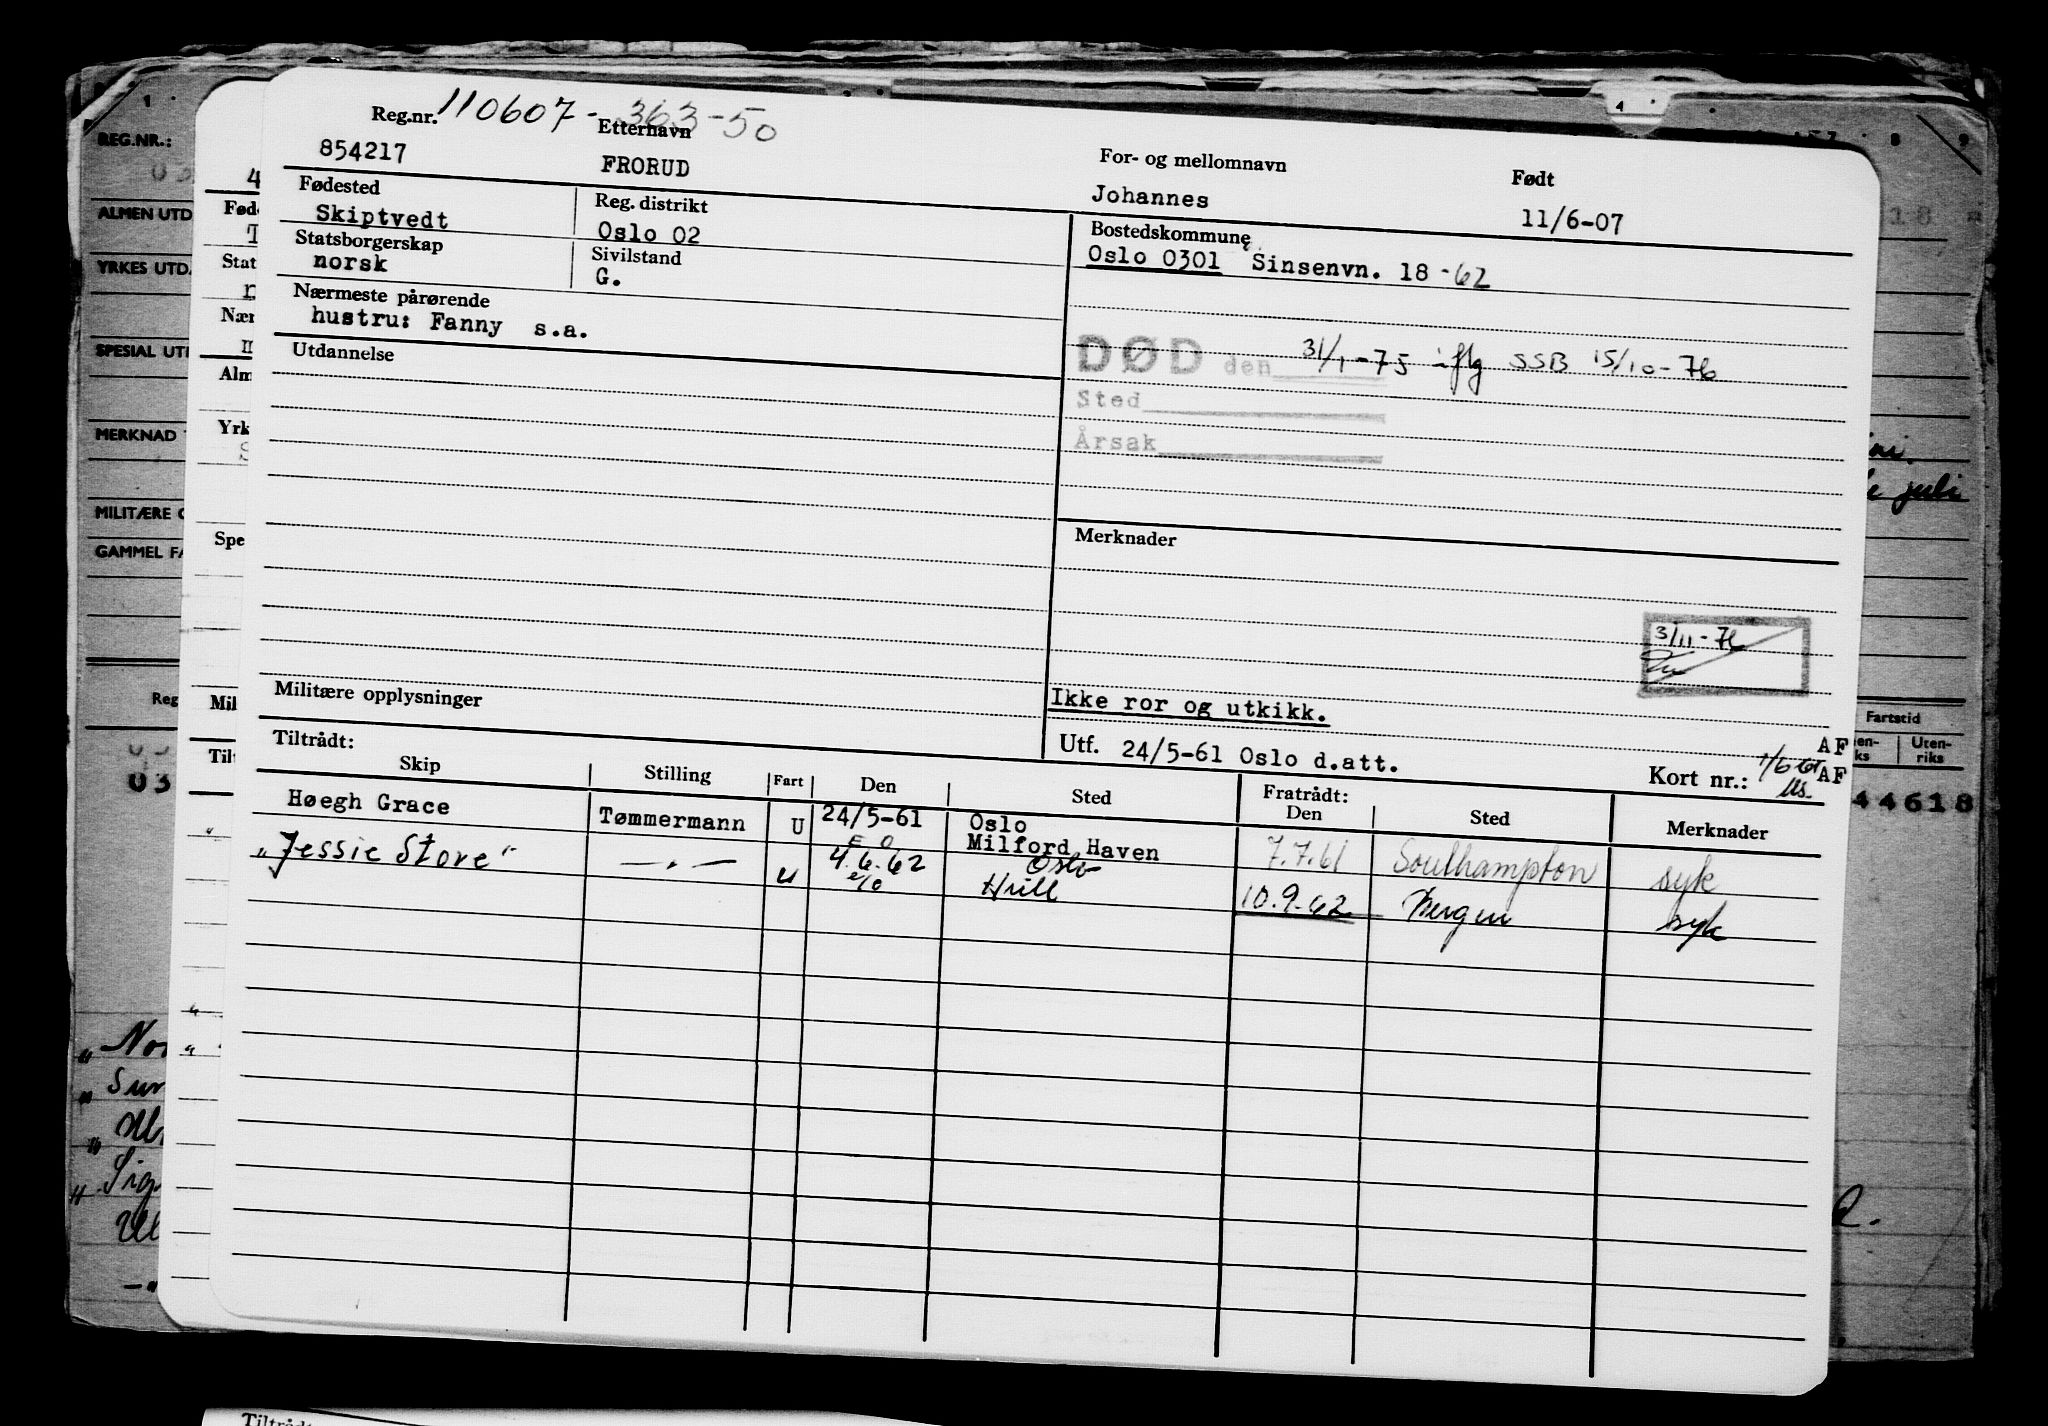 Reg.nr. 110607-363-50
Etternavn
For- og mellomnavn
Født
854217
FRORUD
Johannes
11/6-07
Fødested
Skiptvedt
Reg. distrikt
Oslo 02
Bostedskommune
Oslo 0301 Sinsenvn. 18 -62
Statsborgerskap
norsk
Sivilstand
G.
Nærmeste pårørende
hustru: Fanny s.a.
DØD den 31/1-75 iflg SSB 15/10-76
Sted
Årsak
Utdannelse
Merknader
3/11-76
Militære opplysninger
Ikke ror og utkikk.
Utf. 24/5-61 Oslo d.att.
AF
Kort nr.:
AF
Tiltrådt:
Skip
Stilling
Fart
Den
Sted
Fratrådt:
Den
Sted
Merknader
Høegh Grace Tømmermann U 24/5-61 Oslo
Milford Haven 7.7.61 Southampton syk
"Jessie Stove" — " — u 4.6.62 Oslo
Hull 10.9.62 Bergen syk
REG.NR.:
ALMEN UTD
YRKES UTD.
SPESIAL UT
MERKNAD
MILITÆRE
GAMMEL FA
Reg
03
1
4
8
9
18
juli
Fartstid
Uten-
riks
44618
4
Fød
Stat
Nær
Alm
Yrk
Spe
Mil
Til
Sig
Tiltrådt